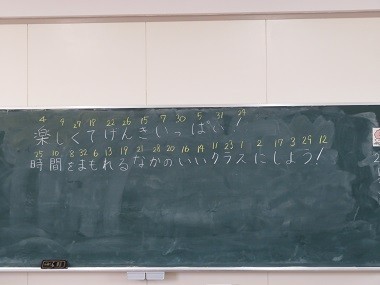 4 9 27 18 22 26 15 7 30 5 31 24
楽しくてげんきいっぱい!
25 10 8 32 6 13 14 21 28 20 16 19 11 23 1 2 17 3 29 12
時間をまもれるなかのいいクラスにしよう!